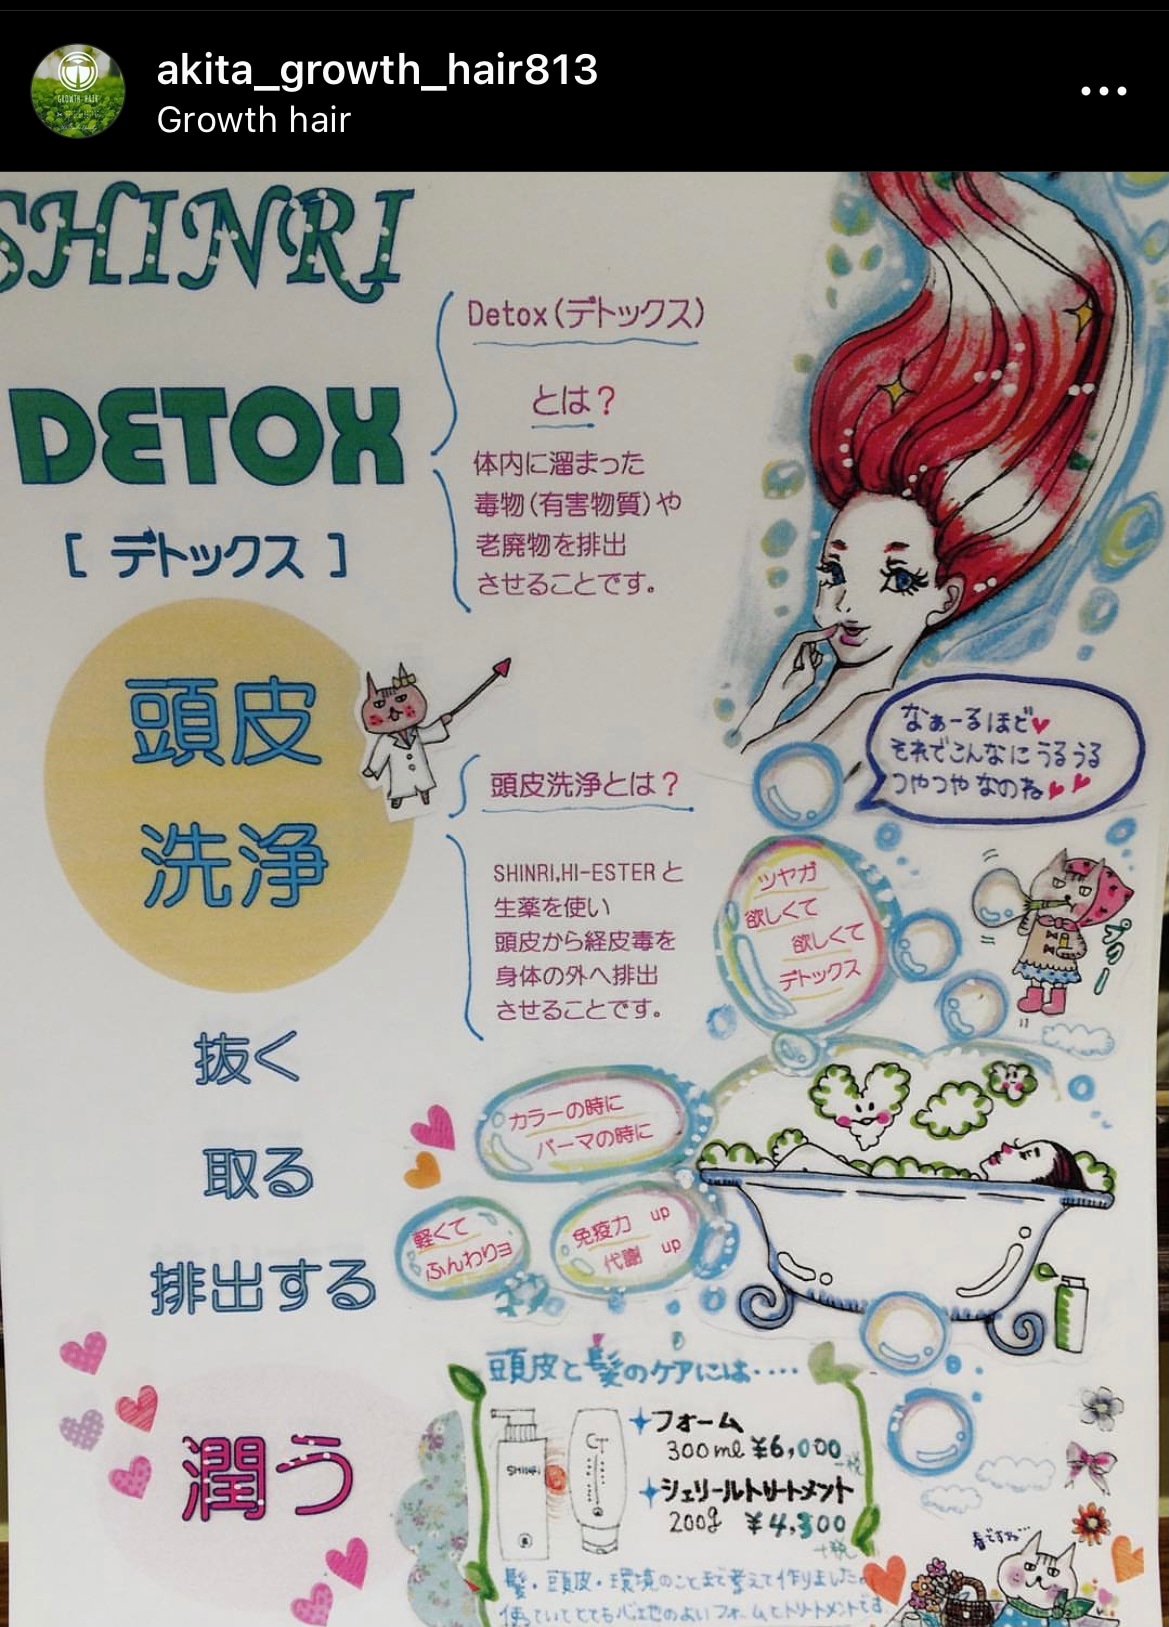 akita_growth_hair813
Growth hair
GROWTH HAIR
SHINRI
DETOX
[ デトックス ]
Detox(デトックス)
とは?
体内に溜まった
毒物(有害物質)や
老廃物を排出
させることです。
頭皮
洗浄
頭皮洗浄とは?
SHINRI,HI-ESTERと
生薬を使い
頭皮から経皮毒を
身体の外へ排出
させることです。
なぁーるほど♥
それでこんなにうるうる
つやつやなのね♥♥
ツヤが
欲しくて
欲しくて
デトックス
抜く
取る
排出する
カラーの時に
パーマの時に
軽くて
ふんわりヨ
免疫力 up
代謝 up
潤う
頭皮と髪のケアには・・・・
SHINRI
フォーム
300ml ¥6,000
+税
シェリールトリートメント
200g ¥4,300
+税
髪・頭皮・環境のことまで考えて作りました。
使っていてとても心地のよいフォームとトリートメントです